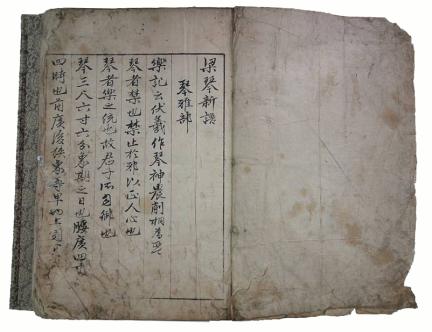 梁琴新譜
琴雅部
樂記云伏羲作琴神農削桐爲
琴者禁也禁止於邪以正人心也
琴者樂之統也故君子所自御也
琴三尺六寸六分象期之日也腰廣四寸
四時也前廣後狹象尊卑也上圓